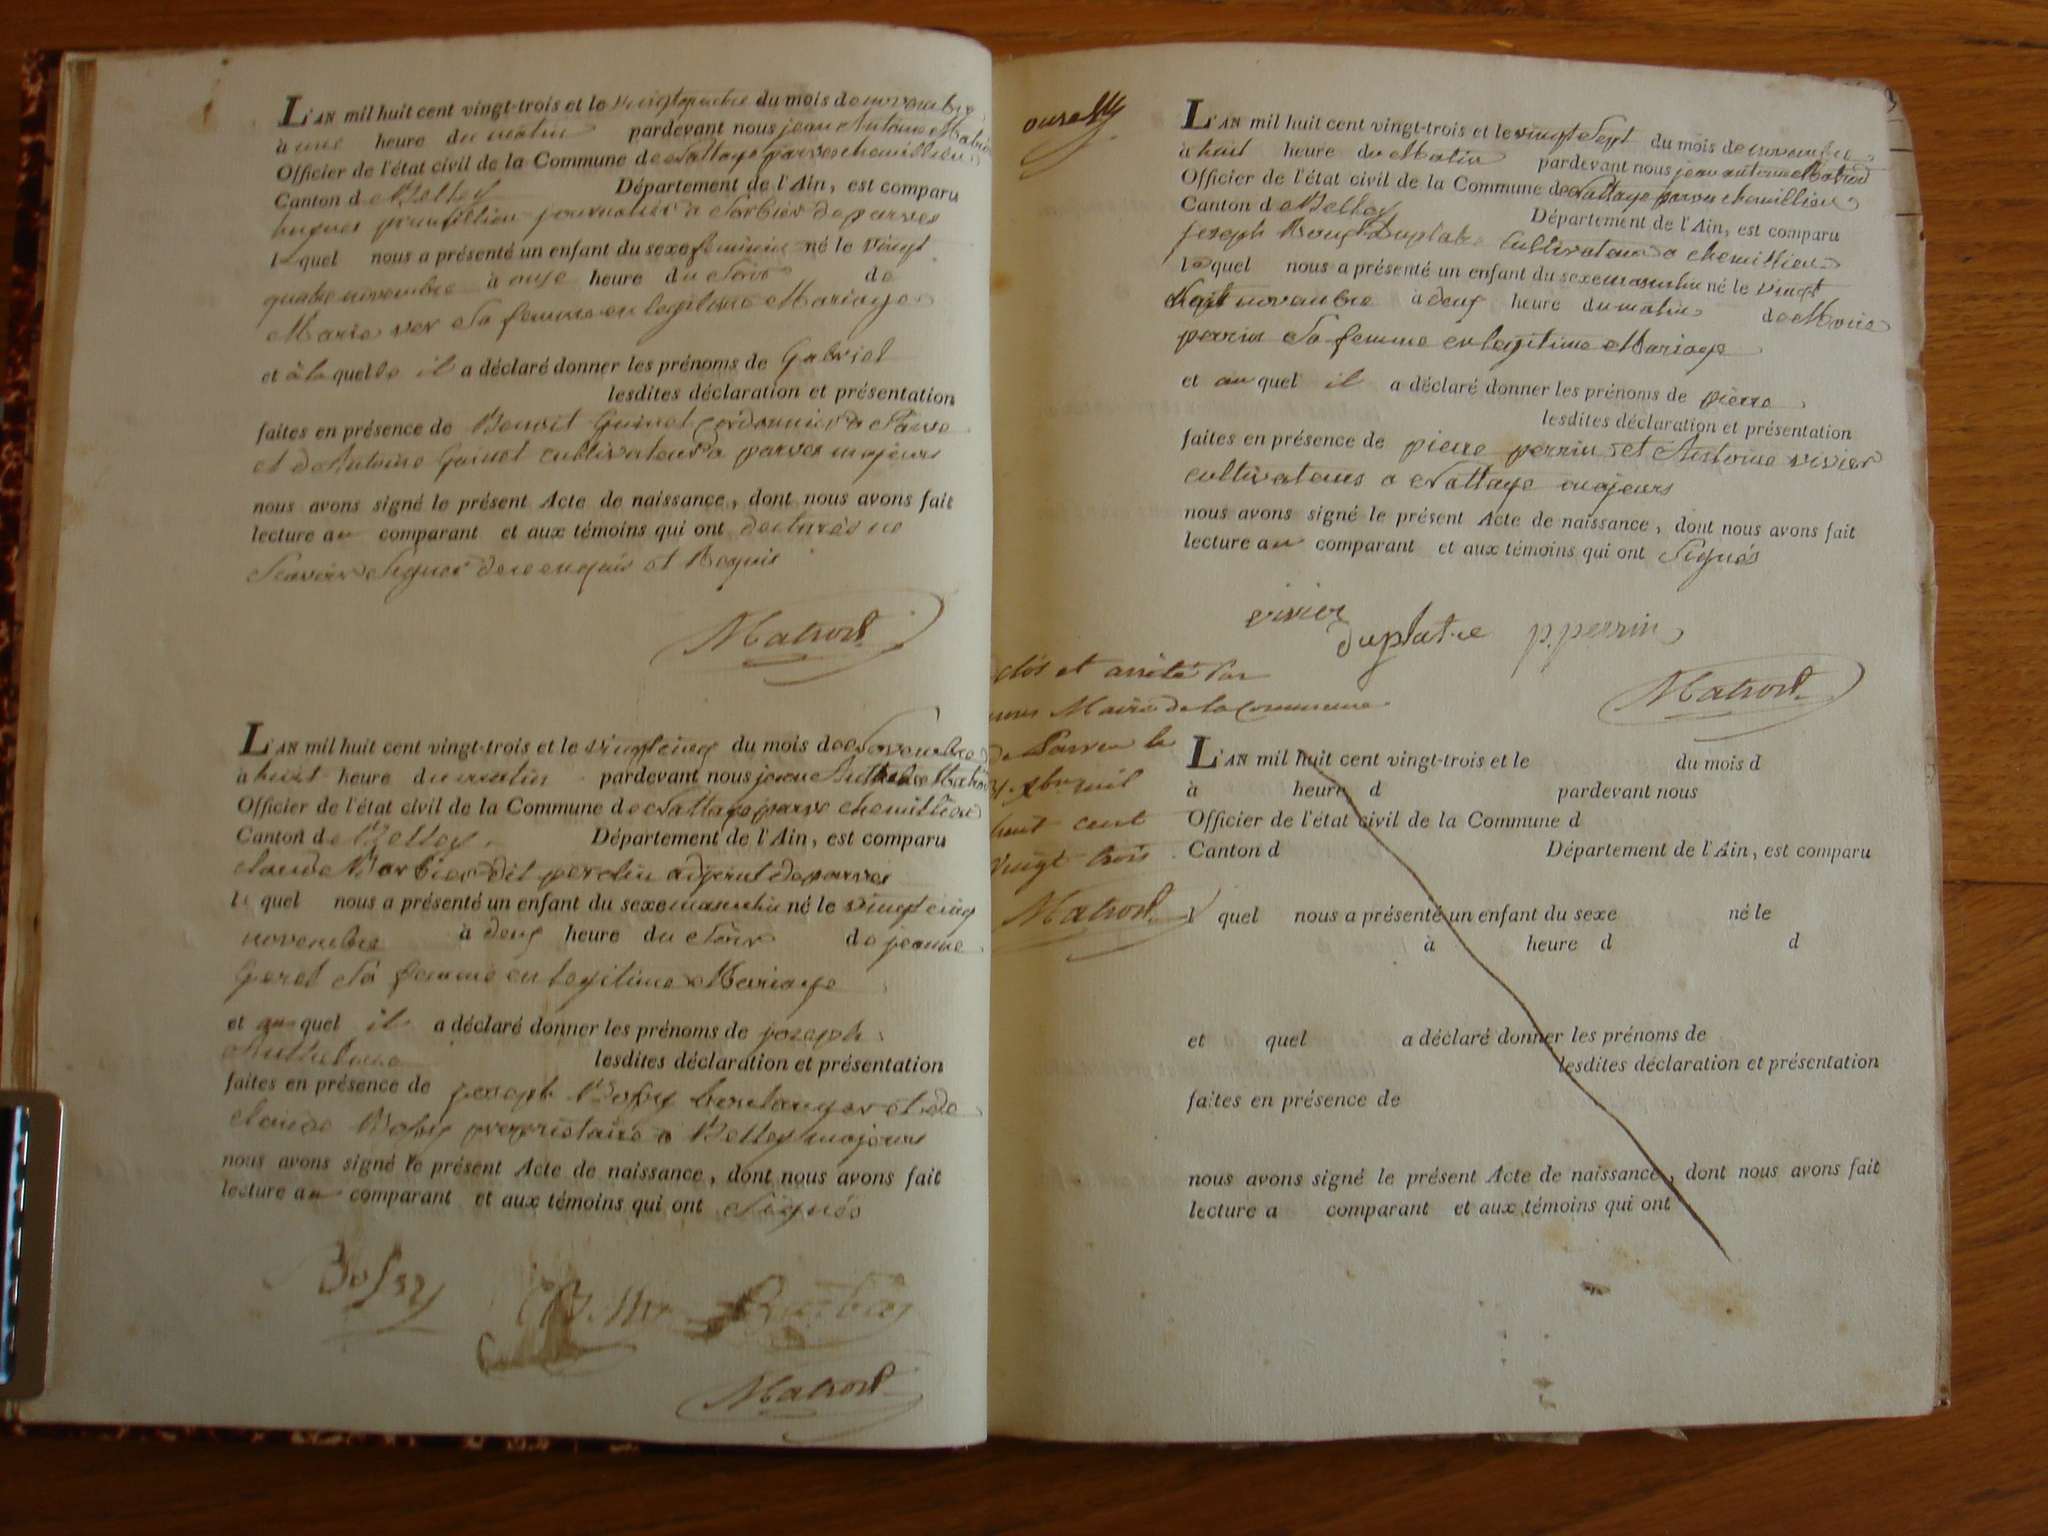 L'AN mil huit cent vingt-trois et le vingtquatre du mois de novembre
à une heure du matin pardevant nous jean Antoine
Officier de l'état civil de la Commune de Nattage parves chemillieu
Canton de Belley Département de l'Ain, est comparu
hugues journalier à Sorbier de parves
lequel nous a présenté un enfant du sexe feminin né le vingt
quatre novembre à onze heure du Soir de
Marie ver Sa femme en legitime Mariage
et à laquelle il a déclaré donner les prénoms de Gabriel
lesdites déclaration et présentation
faites en présence de Benoit Guinet Cordonnier à
et d'Antoine Guinet cultivateur à parves majeurs
nous avons signé le présent Acte de naissance, dont nous avons fait
lecture au comparant et aux témoins qui ont declarés ne
Scavoir Signer de ce enquis et Requis
Matrod
L'AN mil huit cent vingt-trois et le vingtcinq du mois de Novembre
à huit heure du matin pardevant nous jean
Officier de l'état civil de la Commune de Nattage parves chemillieu
Canton de Belley. Département de l'Ain, est comparu
claude Barbier dit adjoint de parves
le quel nous a présenté un enfant du sexe masculin né le vingt cinq
novembre à deux heure du Soir de jeanne
Sa femme en legitime Mariage
et au quel il a déclaré donner les prénoms de joseph
Anthelme lesdites déclaration et présentation
faites en présence de joseph Bossy boulanger et de
claude Bossy proprietaire à Belley majeurs
nous avons signé le présent Acte de naissance, dont nous avons fait
lecture au comparant et aux témoins qui ont Signés
Bossy
Matrod
L'AN mil huit cent vingt-trois et le vingt Sept du mois de novembre
à huit heure du Matin pardevant nous jean antoine Matrod
Officier de l'état civil de la Commune de Nattage parves chemillieu
Canton de Belley Département de l'Ain, est comparu
joseph Duplatre Cultivateur à chemillieu
lequel nous a présenté un enfant du sexe masculin né le vingt
Sept novembre à deux heure du matin de Marie
perrin Sa femme en legitime Mariage
et au quel il a déclaré donner les prénoms de pierre
lesdites déclaration et présentation
faites en présence de pierre perrin et Antoine vivier
cultivateurs a Nattage majeurs
nous avons signé le présent Acte de naissance, dont nous avons fait
lecture au comparant et aux témoins qui ont Signés
vivier
duplatre p.perrin
Matrod
clos et arrêté Par
nous Maire de la Commune
de Parves le
31 Xbre mil
huit cent
vingt trois
Matrod
L'AN mil huit cent vingt-trois et le du mois d
à heure d pardevant nous
Officier de l'état civil de la Commune d
Canton d Département de l'Ain, est comparu
l quel nous a présenté un enfant du sexe né le
à heure d d
et quel a déclaré donner les prénoms de
lesdites déclaration et présentation
faites en présence de
nous avons signé le présent Acte de naissance, dont nous avons fait
lecture a comparant et aux témoins qui ont